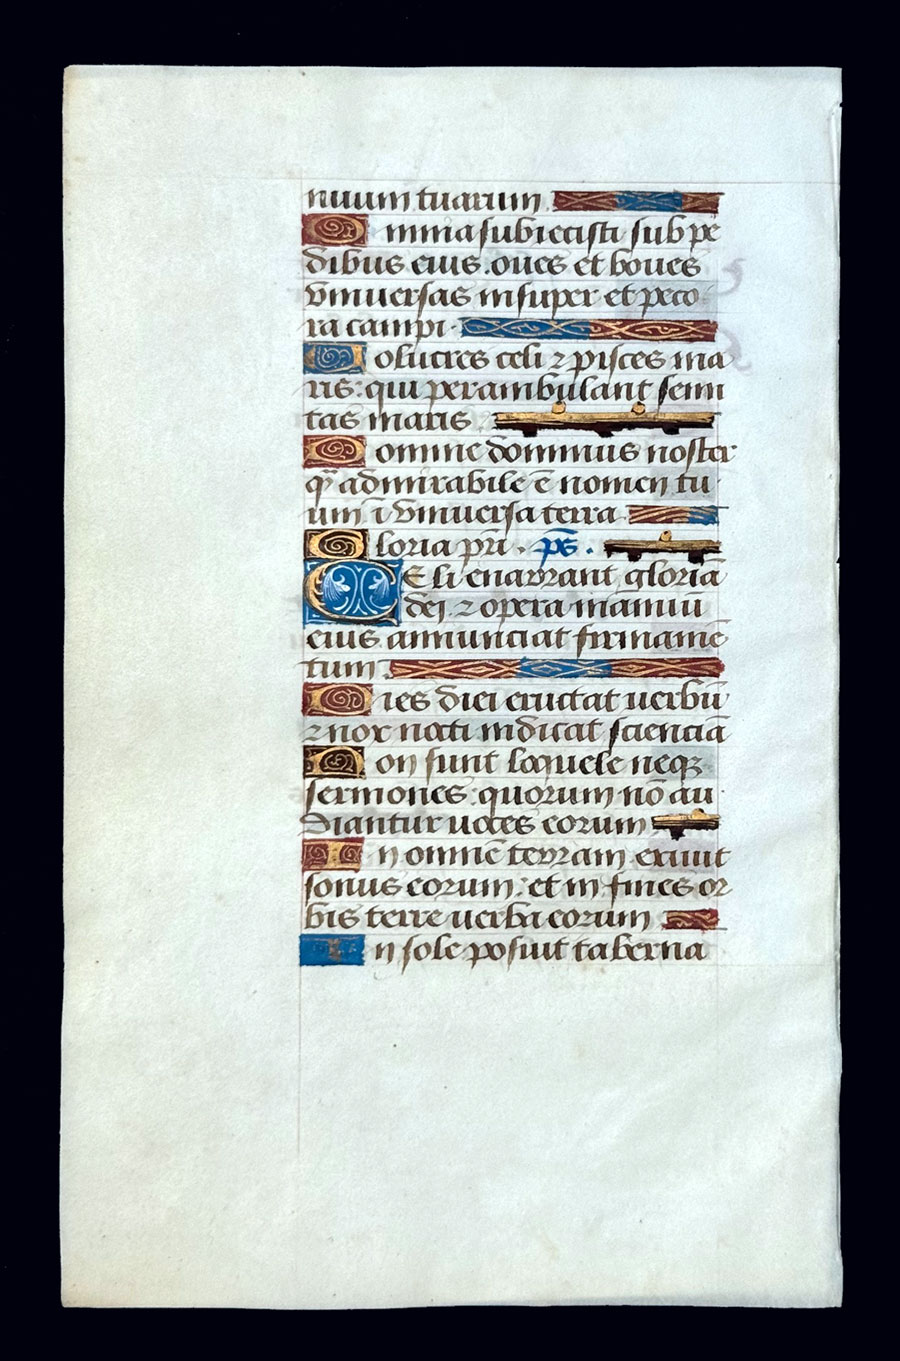 nuum tuarum
Omnia subiecisti sub pe
dibus eius. oues et boues
vniuersas insuper et peco
ra campi.
Uolucres celi ⁊ pisces ma
ris: qui perambulant semi
tas maris.
Domine dominus noster
q̄ admirabile ē nomen tu
um ī vniuersa terra
Gloria pri. p̄s.
CEli enarrant gloriā
dei. ⁊ opera manuū
eius annunciat firmamē
tum.
Dies diei eructat uerbū
⁊ nox nocti indicat scienciā
Non sunt loquele neqꝫ
sermones: quorum nō au
diantur uoces eorum
In omnē terram exiuit
sonus eorum: et in fines or
bis terre uerba eorum
In sole posuit taberna